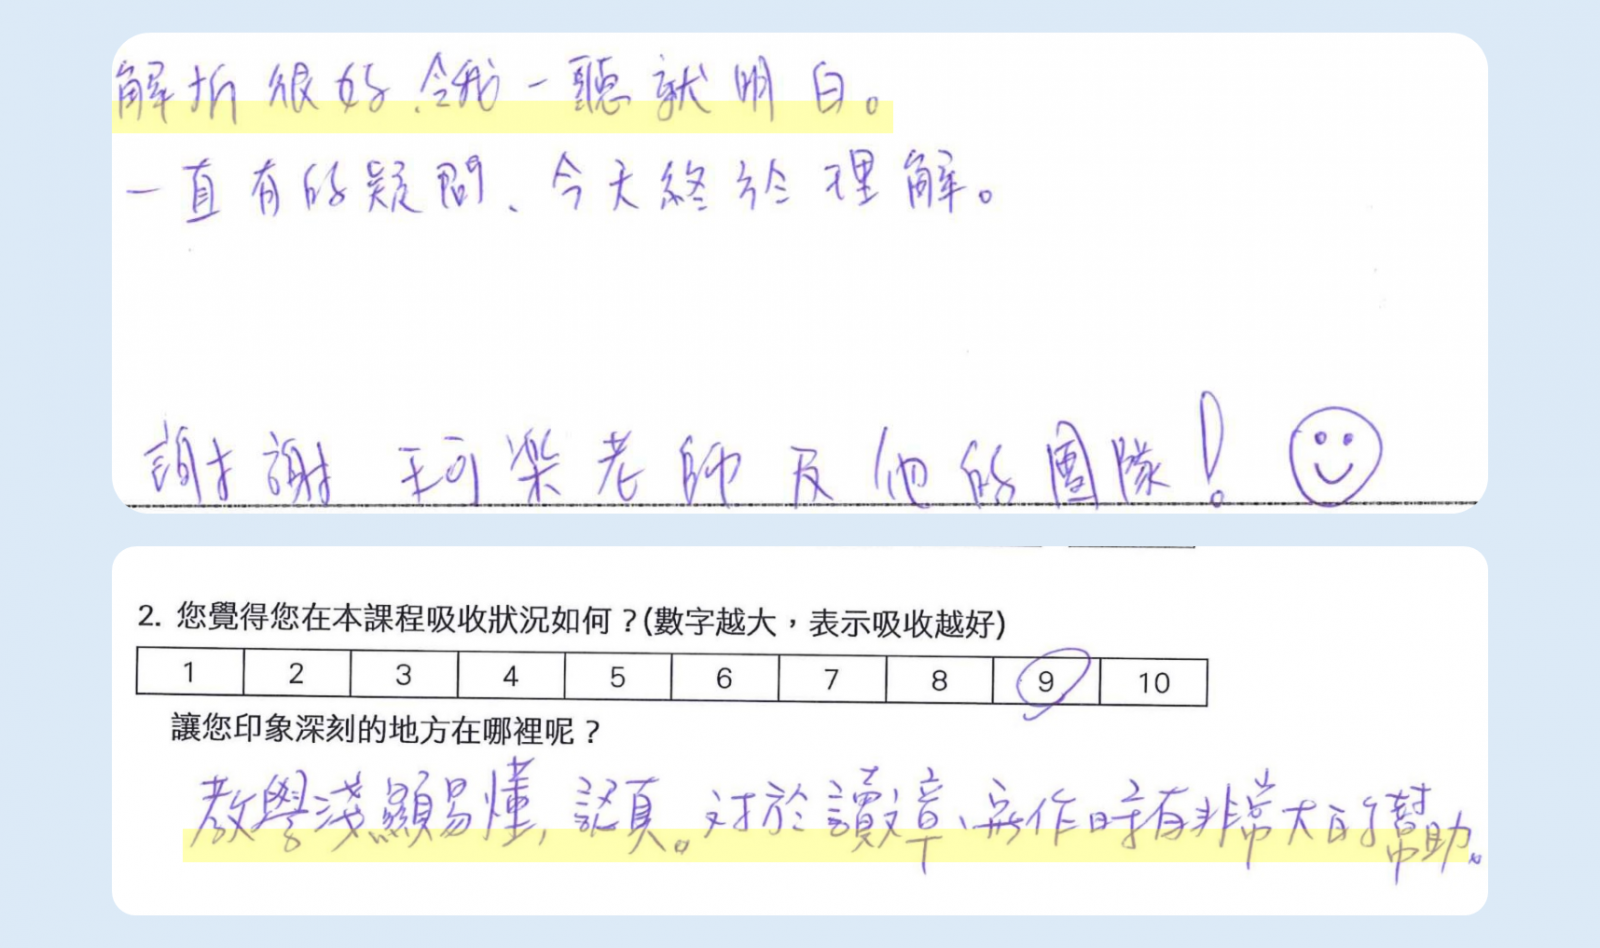 解析很好,令我一聽就明白。
一直有的疑問、今天終於理解。
謝謝 王可樂老師及他的團隊!
2. 您覺得您在本課程吸收狀況如何?(數字越大,表示吸收越好)
1 2 3 4 5 6 7 8 9 10
讓您印象深刻的地方在哪裡呢?
教學淺顯易懂,認真。对於讀文章、寫作時有非常大的幫助。